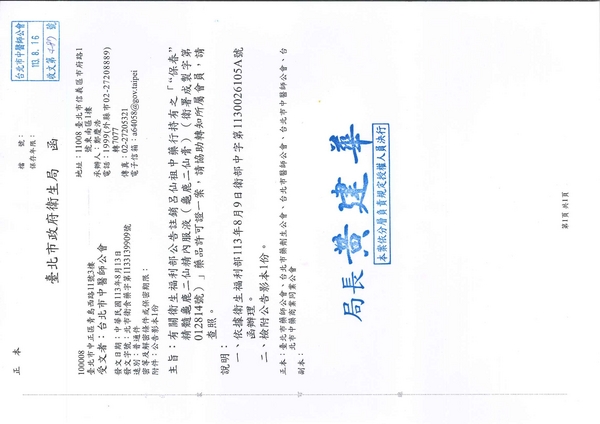 台北市中醫師公會
113.8.16
收文第 號
正 本
檔 號：
保存年限：
臺北市政府衛生局 函
地址：11008 臺北市信義區市府路1
號東南區1樓
承辦人：鄭慶浩
電話：1999(外縣市02-27208889)
轉7077
傳真：02-27205321
電子信箱：a64058@gov.taipei
100008
臺北市中正區青島西路11號3樓
受文者：台北市中醫師公會
發文日期：中華民國113年8月13日
發文字號：北市衛食藥字第1133139909號
速別：普通件
密等及解密條件或保密期限：
附件：公告影本1份
主旨：有關衛生福利部公告註銷呂仙祖中藥行持有之「"保春"
精髓龜鹿二仙精內服液（龜鹿二仙膏）（衛署成製字第
012814號）」藥品許可證一案，請協助轉知所屬會員，請
查照。
說明：
一、依據衛生福利部113年8月9日衛部中字第1130026105A號
函辦理。
二、檢附公告影本1份。
正本：臺北市藥師公會、台北市藥劑生公會、台北市中醫師公會、台
北市中藥商業同業公會
副本：
局長 黃建華
本案依分層負責規定授權人員決行
第1頁 共1頁